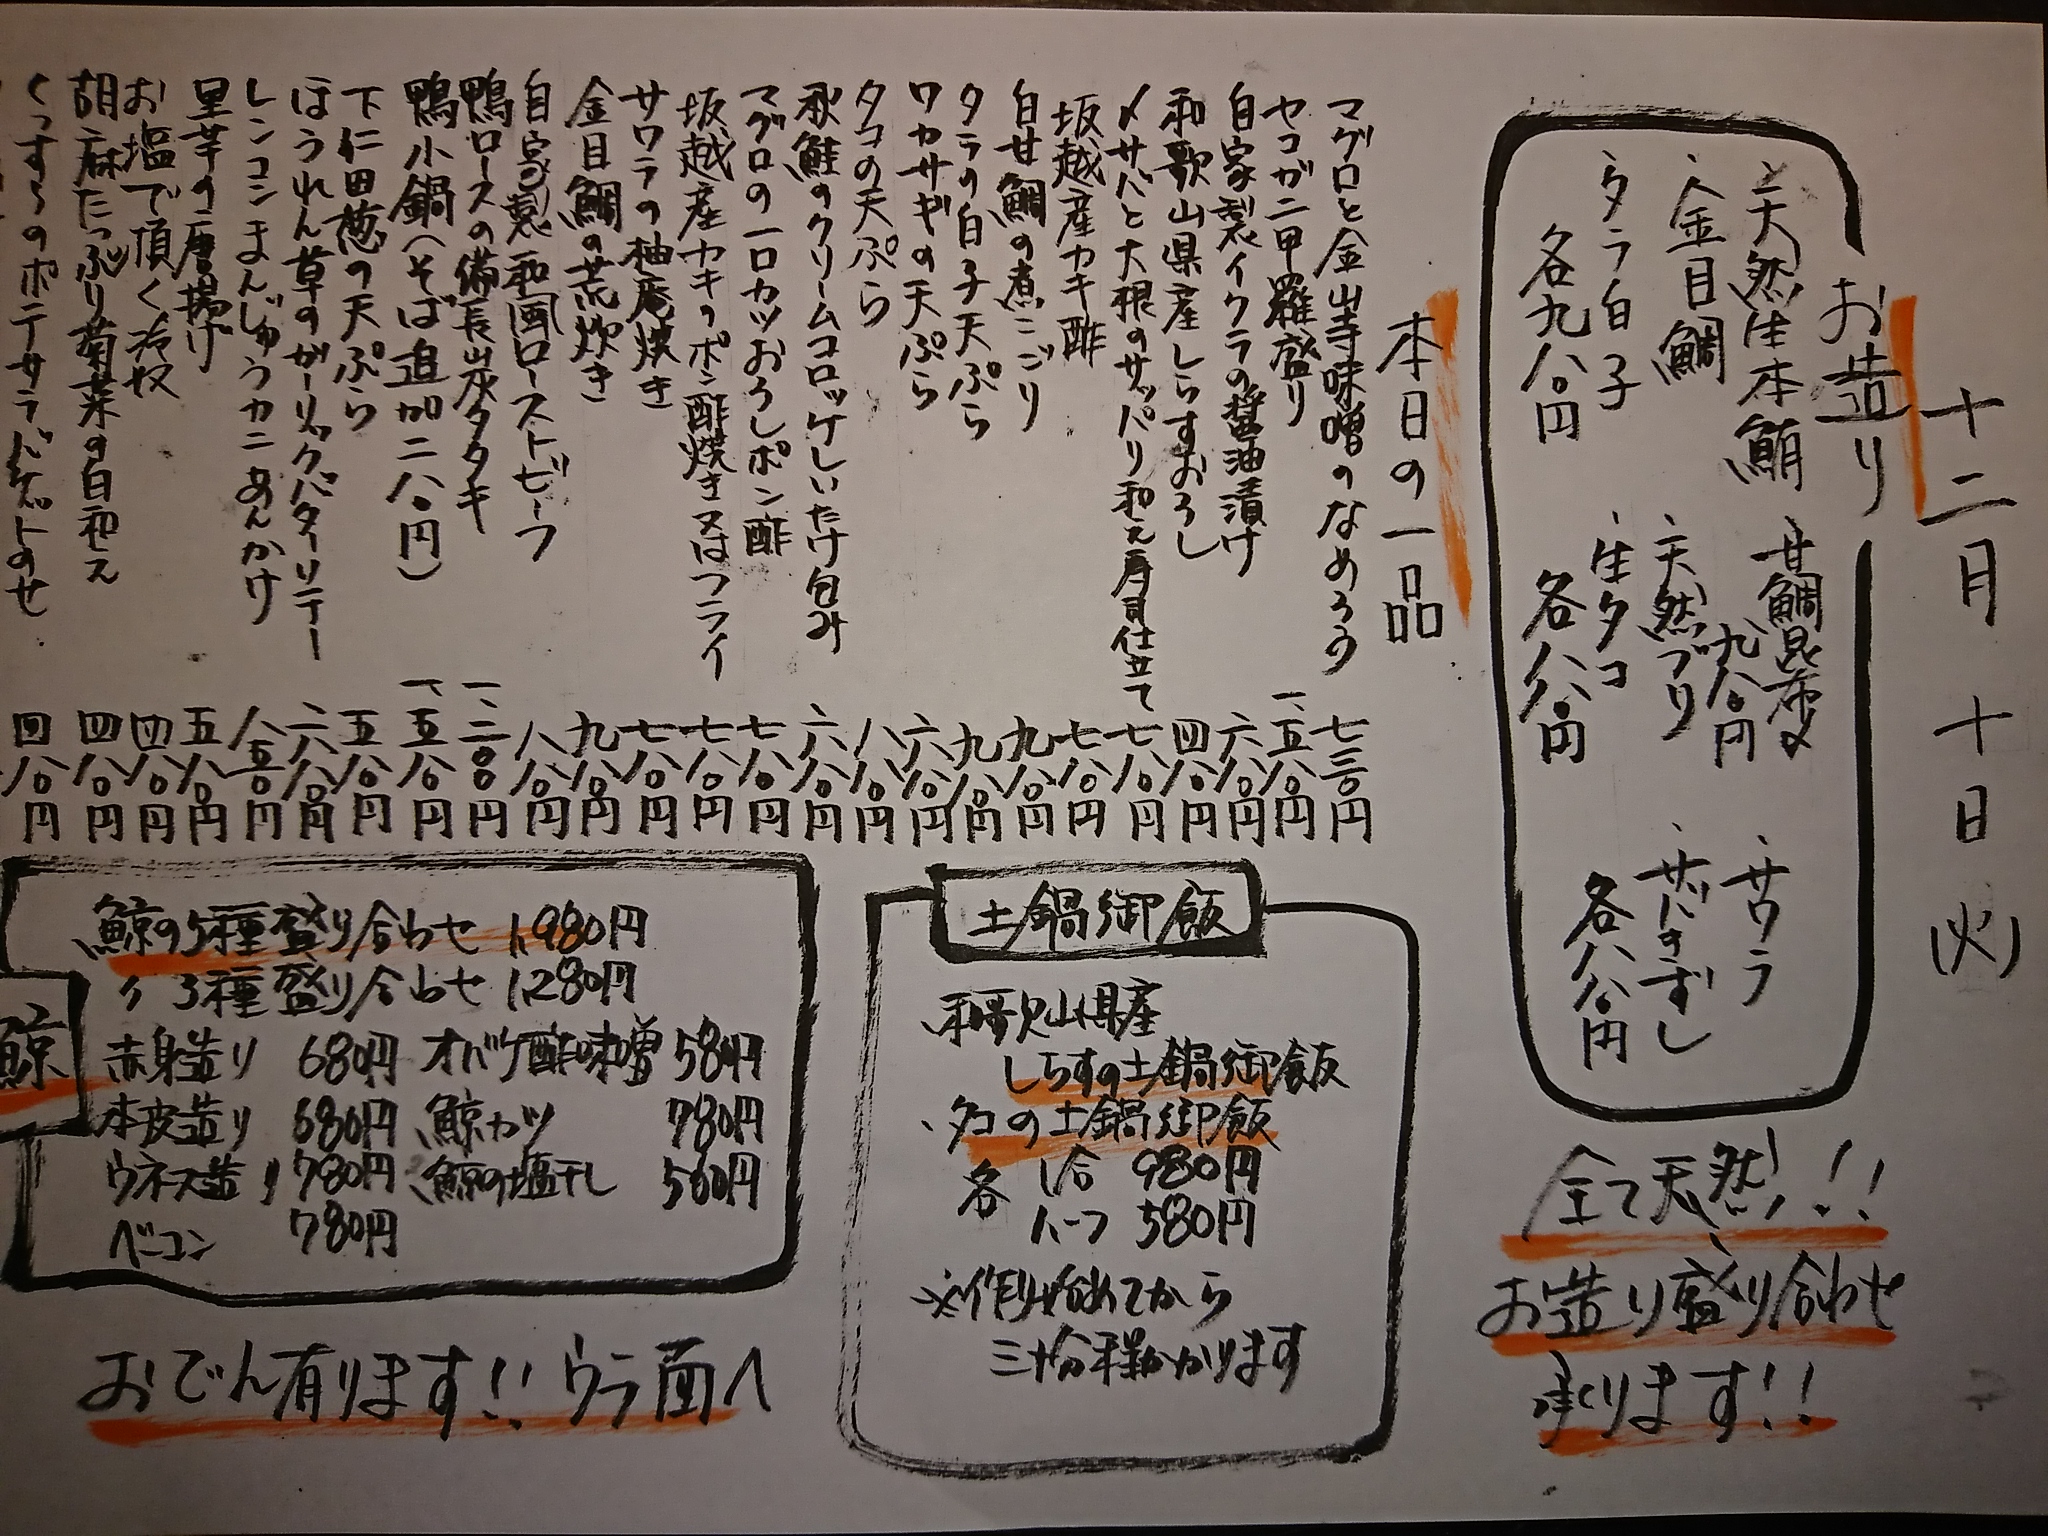 十二月十日(火)
お造り
、天然生本鮪
、金目鯛
、タラ白子
各九八〇円
、甘鯛昆布〆
九八〇円
、天然ブリ
、生タコ
各八八〇円
、サワラ
、サバきずし
各八八〇円
全て天然!!
お造り盛り合わせ
承ります!!
本日の一品
マグロと金山寺味噌のなめろう 七三〇円
セコガニ甲羅盛り 一、五八〇円
自家製イクラの醤油漬け 六八〇円
和歌山県産しらすおろし 四八〇円
〆サバと大根のサッパリ和え寿司仕立て 七八〇円
坂越産カキ酢 七八〇円
白甘鯛の煮こごり 九八〇円
タラの白子天ぷら 九八〇円
ワカサギの天ぷら 六八〇円
タコの天ぷら 八八〇円
秋鮭のクリームコロッケしいたけ包み 六八〇円
マグロの一口カツおろしポン酢 七八〇円
坂越産カキのポン酢焼き又はフライ 七八〇円
サワラの柚庵焼き 七八〇円
金目鯛の荒炊き 九八〇円
自家製和風ローストビーフ 八八〇円
鴨ロースの備長炭タタキ 一、二〇〇円
鴨小鍋(そば追加二八〇円) 一、五八〇円
下仁田葱の天ぷら 五八〇円
ほうれん草のガーリックバターソテー 六八〇円
レンコンまんじゅうカニあんかけ 八五〇円
里芋の唐揚げ 五八〇円
お塩で頂く冷奴 四八〇円
胡麻たっぷり菊菜の白和え 四八〇円
くっすーのポテサラバゲットのせ 四八〇円
土鍋御飯
、和歌山県産
しらすの土鍋御飯
、タコの土鍋御飯
各 1合 980円
ハーフ 580円
※作り始めてから
三十分程かかります
鯨
鯨の5種盛り合わせ 1,980円
〃 3種盛り合わせ 1,280円
赤身造り 680円 オバケ酢味噌 580円
本皮造り 680円 鯨カツ 780円
ウネス造り 780円 鯨の塩干し 560円
ベーコン 780円
おでん有ります!!ウラ面へ